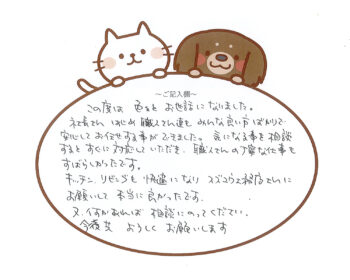 ～ご記入欄～
この度は 色々と お世話になりました。
はじめ 職人さん達も みんな良い方ばかりで
安心して お任せする事ができました。 気になる事を 相談
すると すぐに 対応していただき、 職人さんの 丁寧な仕事も
すばらしかったです。
キッチン、リビングも 快適になり さんに
お願いして 本当に良かったです。
又、何かあれば 相談にのってください。
今後共 よろしく お願いします